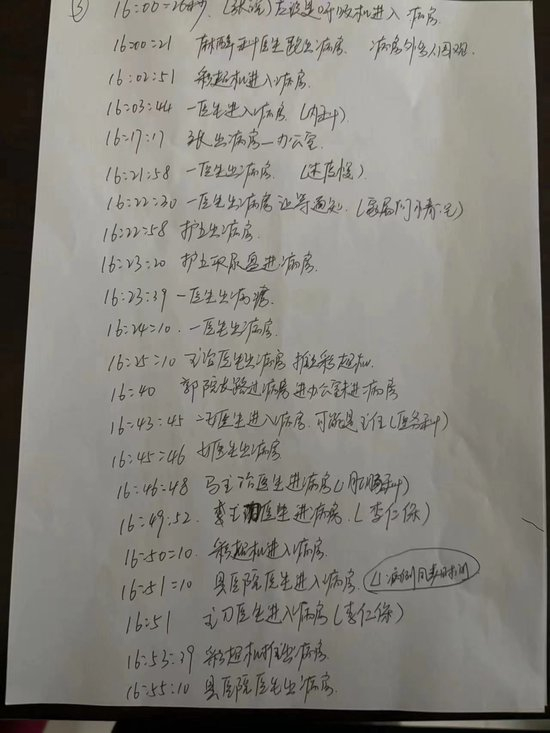 ③ 16:00 （张说）应该是呼吸机进入病房
16:00:21 麻醉科医生跑出病房 病房外多人围观
16:02:51 彩超机进入病房
16:03:44 一医生进入病房（内科）
16:17:17 张出病房—办公室
16:21:58 一医生出病房（速度慢）
16:22:20 一医生出病房
16:22:58 护士出病房
16:23:20 护士取尿壶进病房
16:23:39 一医生出病房
16:24:10 一医生出病房
16:25:10 主治医生出病房 推彩超机
16:40 郭院长路过病房进办公室未进病房
16:43:45 一女医生进入病房，可能是主任（医务科）
16:45:46 女医生出病房
16:46:48 马主治医生进病房
16:49:52 李主刀医生进病房（李仁保）
16:50:10 彩超机进入病房
16:51:10 县医院医生进入病房
16:51 主刀医生进入病房（李仁保）
16:53:39 彩超机推出病房
16:55:10 县医院医生出病房